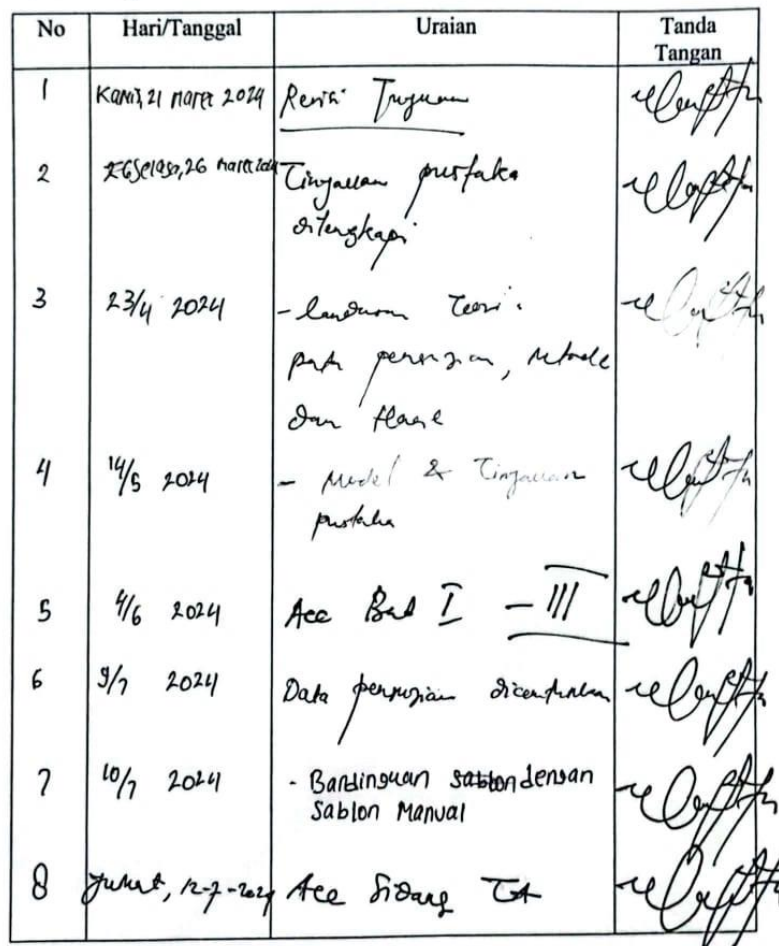 No Hari/Tanggal Uraian Tanda Tangan
1 Kamis, 21 Maret 2024 Revisi Tinjauan
2 Selasa, 26 Maret 2024 Tinjauan pustaka
dilengkapi
3 23/4 2024 - landasan Teori :
pada pengujian, Metode
dan Hasil
4 14/5 2024 - Model & Tinjauan
pustaka
5 4/6 2024 Acc Bab I - III
6 9/7 2024 Data pengujian dicantumkan
7 10/7 2024 - Bandingkan sablon dengan
Sablon Manual
8 Jumat, 12-7-2024 Acc Sidang TA